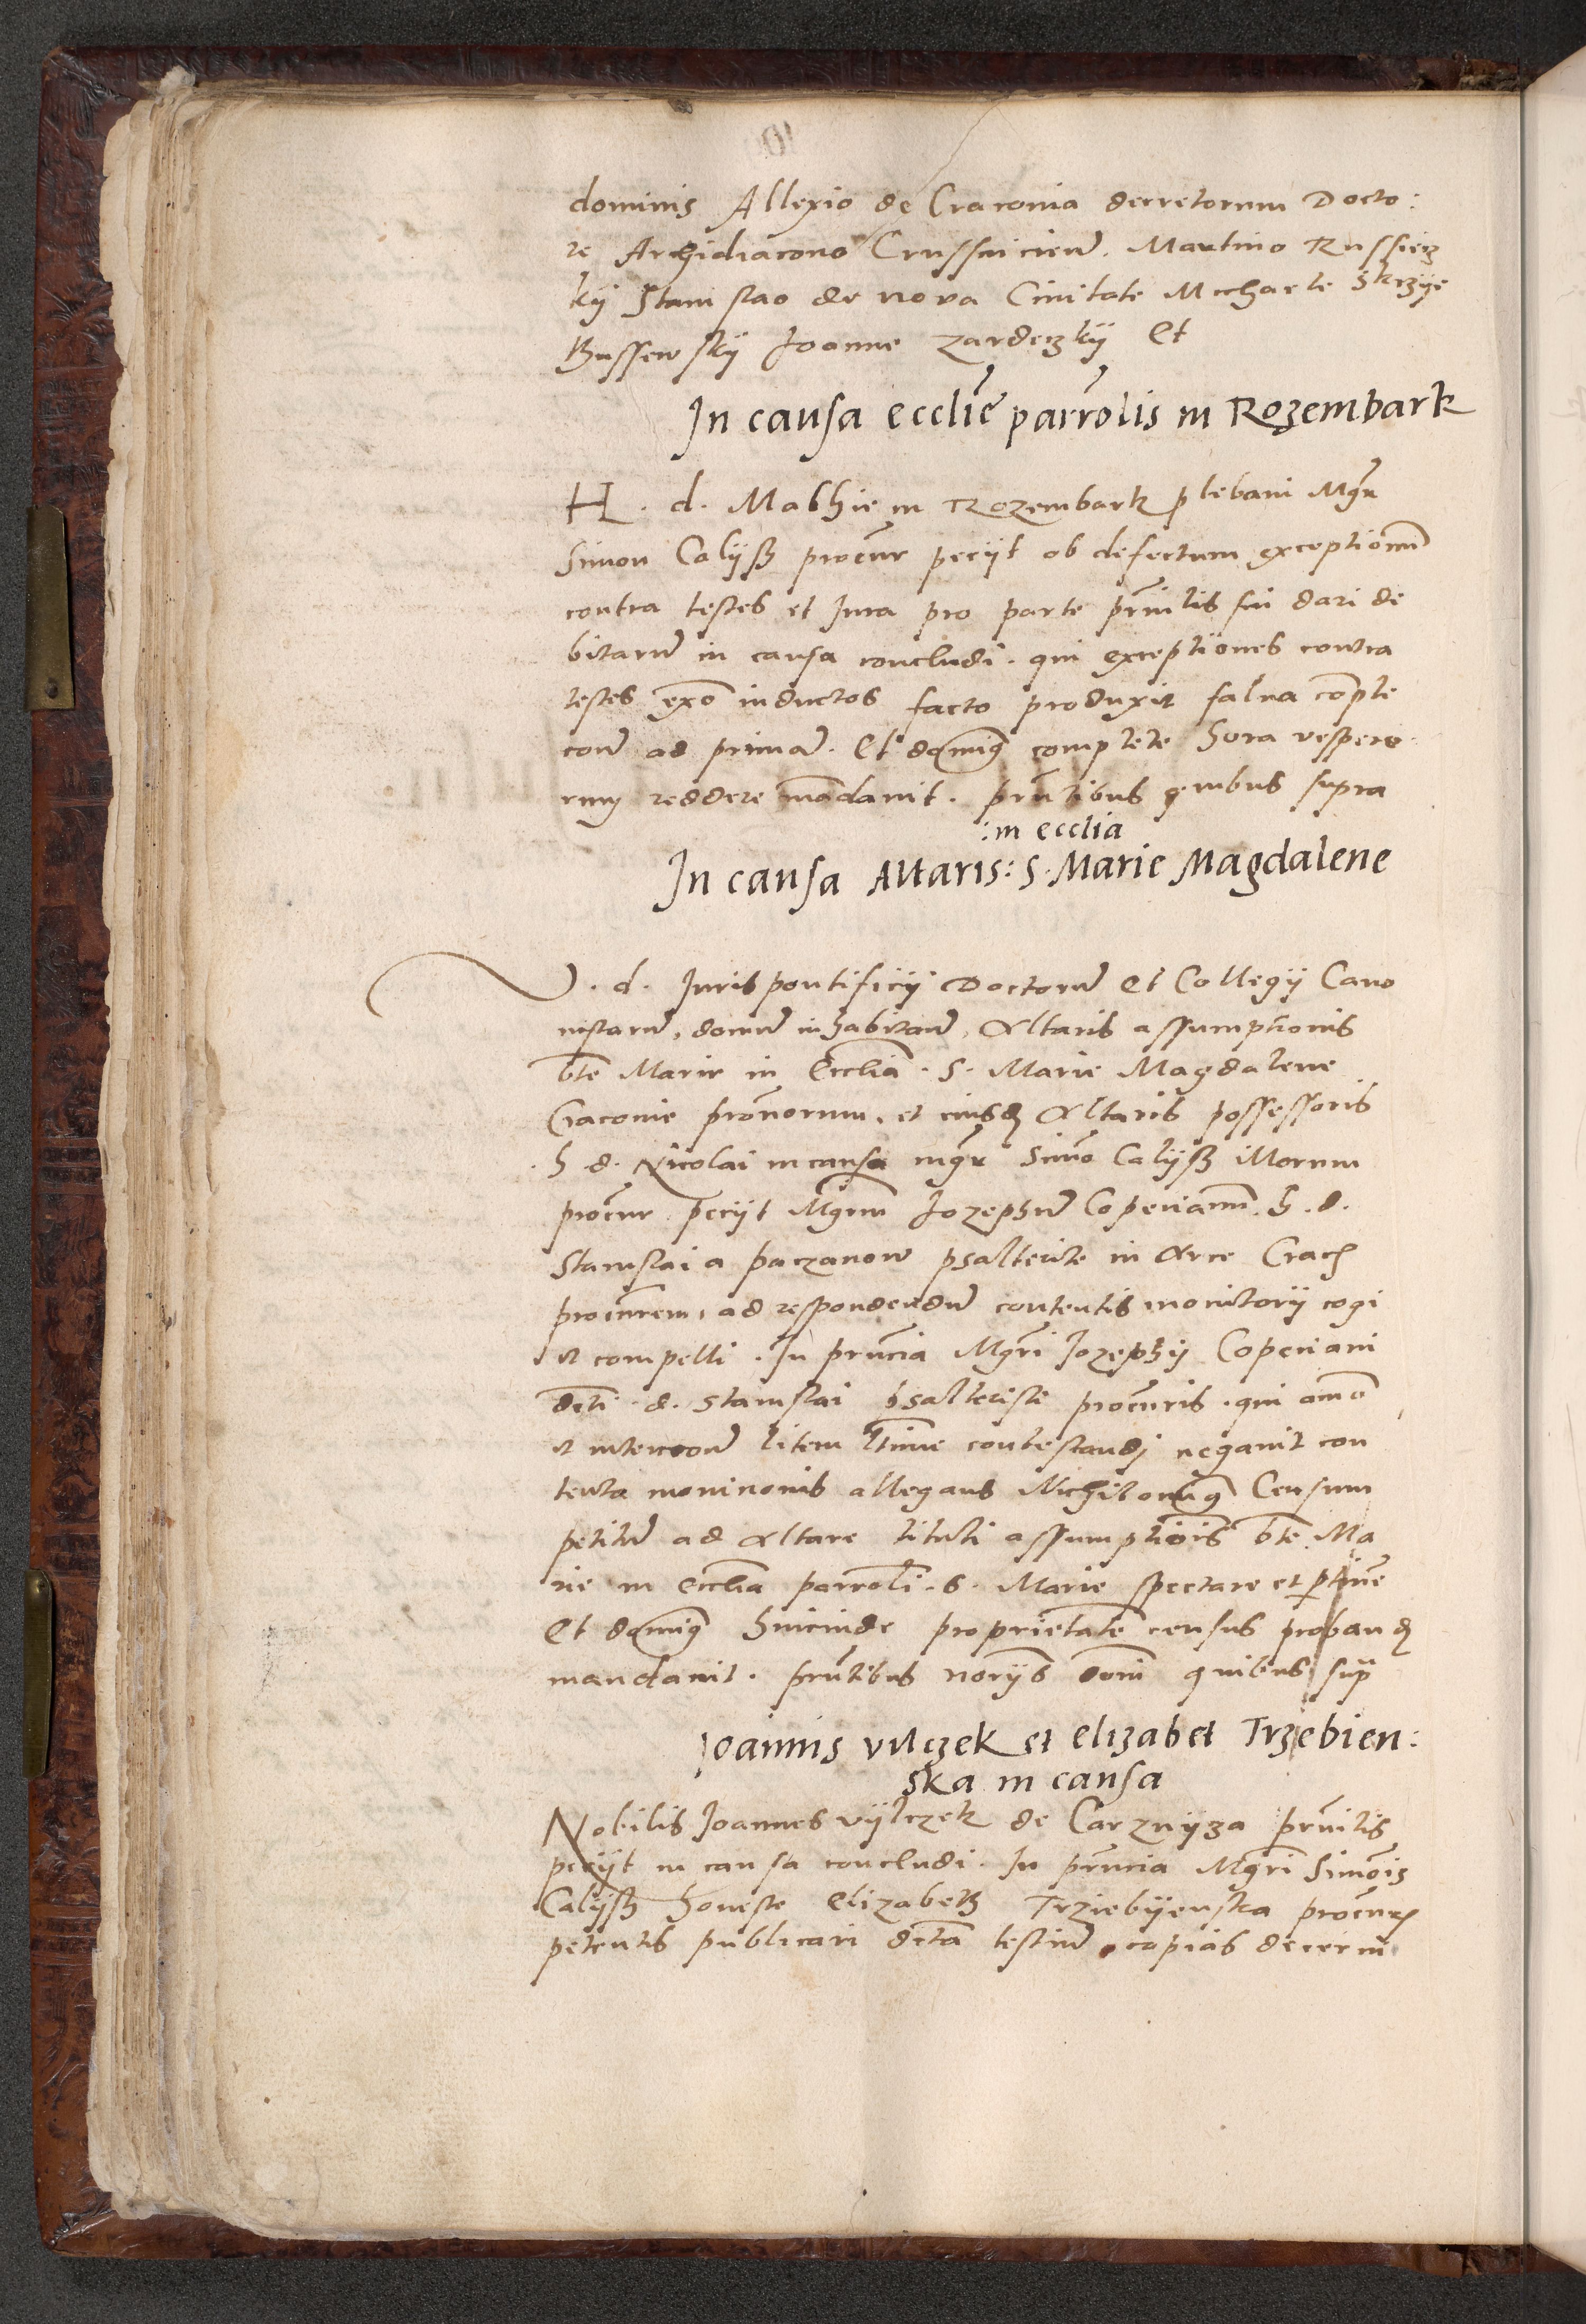 dominis Allexio de Cracovia decretorum Docto:
re Archidiacono Crussvicien̄. Martino Russiecz
kÿ Stanislao de nova Civitate Michaele Skrzÿe
Bussewskÿ Joanne Zardeczkÿ Et
In causa eccliē parrōlis in Rozembark
H. d. Mathie in Rozembark plebani Mgr̄
Simon Calÿsz procūr peciit ob defectum exceptionū
contra testes et Jura pro parte prn̄cipalis sui dari de
bitarū in causa concludi. qui exceptiones contra
testes exō inductos facto produxit salva comple
conē ad primā. Et dominus complete hora vespero
rum reddere mādavit. prn̄tibus quibus supra
:in ecclia
In causa Altaris: S. Marie Magdalene
V. d. Juris pontificii Doctorū Et Collegÿ Cano
nistarū, domū inhabitanū, Altaris assumptionis
bte Marie in Ecclia. S. Marie Magdalene
Cracovie prōnorum, et eiusdē Altaris possessoris
. h d. Nicolai in causa mgr̄ Simō Calÿsz illorum
procūr peciit Mgrm̄ Jozephū Coperianū. h. d.
Stanislai a paczanow psalteriste in Arce Crac
procūrem, ad respondendū contentis monitorÿ cogi
et compelli. In prn̄cia Mgrī Jozephÿ Coperiani
dcti. d. Stanislai psalteriste procūris. qui aīmo
et intencione litem l̄time contestandi negavit con
tenta monicionis allegans Nichilominus Censum
petitū ad Altare tituli assumptiōis bte Ma
rie in Ecclia parrōli. S. Marie spectare et ptinē
Et dominus hincinde proprietatē census probandū
mandavit. prn̄tibus noriis oōni quibus sup
Joannis vilczek et elizabet Trzebien:
ska in causa
Nobilis Joannes vÿlczek de Carznÿza prn̄lis
peciit in causa concludi. In prn̄cia Mgrī Simōis
Calÿsz honeste Elizabeth Trziebÿenska procūr
petentis publicari dcta testiū copias decerni